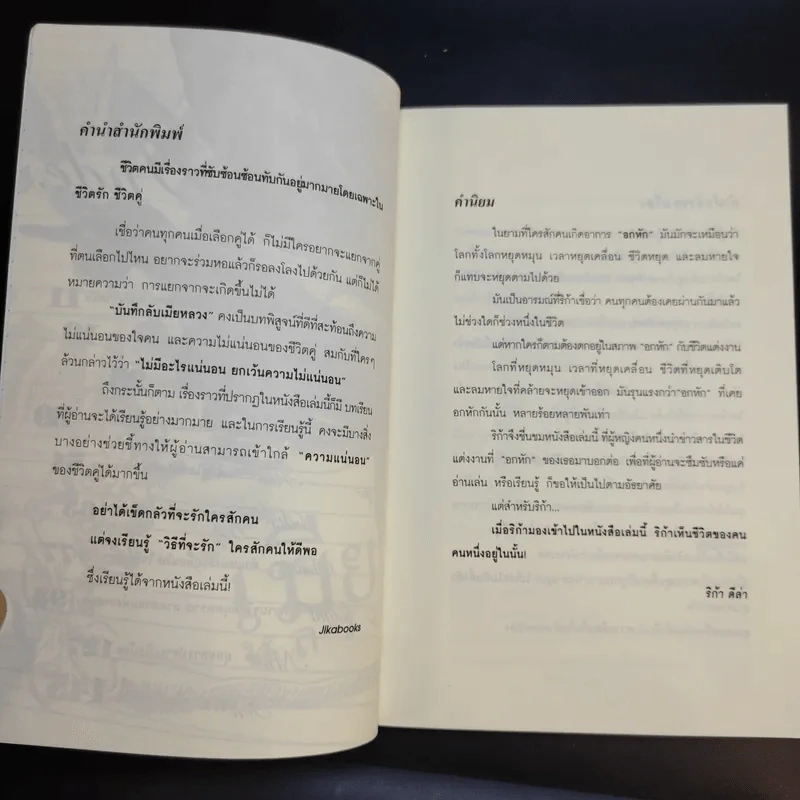 คำนำสำนักพิมพ์
ชีวิตคนมีเรื่องราวที่ซับซ้อนซ้อนทับกันอยู่มากมายโดยเฉพาะใน
ชีวิตรัก ชีวิตคู่
เชื่อว่าคนทุกคนเมื่อเลือกคู่ได้ ก็ไม่มีใครอยากจะแยกจากคู่
ที่ตนเลือกไปไหน อยากจะร่วมหอแล้วก็รอลงโลงไปด้วยกัน แต่ก็ไม่ได้
หมายความว่า การแยกจากจะเกิดขึ้นไม่ได้
"บันทึกลับเมียหลวง" คงเป็นบทพิสูจน์ที่ดีที่สะท้อนถึงความ
ไม่แน่นอนของใจคน และความไม่แน่นอนของชีวิตคู่ สมกับที่ใครๆ
ล้วนกล่าวไว้ว่า "ไม่มีอะไรแน่นอน ยกเว้นความไม่แน่นอน"
ถึงกระนั้นก็ตาม เรื่องราวที่ปรากฏในหนังสือเล่มนี้ก็มี บทเรียน
ที่ผู้อ่านจะได้เรียนรู้อย่างมากมาย และในการเรียนรู้นี้ คงจะมีบางสิ่ง
บางอย่างช่วยชี้ทางให้ผู้อ่านสามารถเข้าใกล้ "ความแน่นอน"
ของชีวิตคู่ได้มากขึ้น
อย่าได้เข็ดกลัวที่จะรักใครสักคน
แต่จงเรียนรู้ "วิธีที่จะรัก" ใครสักคนให้ดีพอ
ซึ่งเรียนรู้ได้จากหนังสือเล่มนี้!
Jikabooks
คำนิยม
ในยามที่ใครสักคนเกิดอาการ "อกหัก" มันมักจะเหมือนว่า
โลกทั้งโลกหยุดหมุน เวลาหยุดเคลื่อน ชีวิตหยุด และลมหายใจ
ก็แทบจะหยุดตามไปด้วย
มันเป็นอารมณ์ที่ริก้าเชื่อว่า คนทุกคนต้องเคยผ่านกันมาแล้ว
ไม่ช่วงใดก็ช่วงหนึ่งในชีวิต
แต่หากใครก็ตามต้องตกอยู่ในสภาพ "อกหัก" กับชีวิตแต่งงาน
โลกที่หยุดหมุน เวลาที่หยุดเคลื่อน ชีวิตที่หยุดเติบโต
และลมหายใจที่คล้ายจะหยุดเข้าออก มันรุนแรงกว่า"อกหัก" ที่เคย
อกหักกันนั้น หลายร้อยหลายพันเท่า
ริก้าจึงชื่นชมหนังสือเล่มนี้ ที่ผู้หญิงคนหนึ่งนำข่าวสารในชีวิต
แต่งงานที่ "อกหัก" ของเธอมาบอกต่อ เพื่อที่ผู้อ่านจะซึมซับหรือแค่
อ่านเล่น หรือเรียนรู้ ก็ขอให้เป็นไปตามอัธยาศัย
แต่สำหรับริก้า...
เมื่อริก้ามองเข้าไปในหนังสือเล่มนี้ ริก้าเห็นชีวิตของคน
คนหนึ่งอยู่ในนั้น!
ริก้า ดีล่า